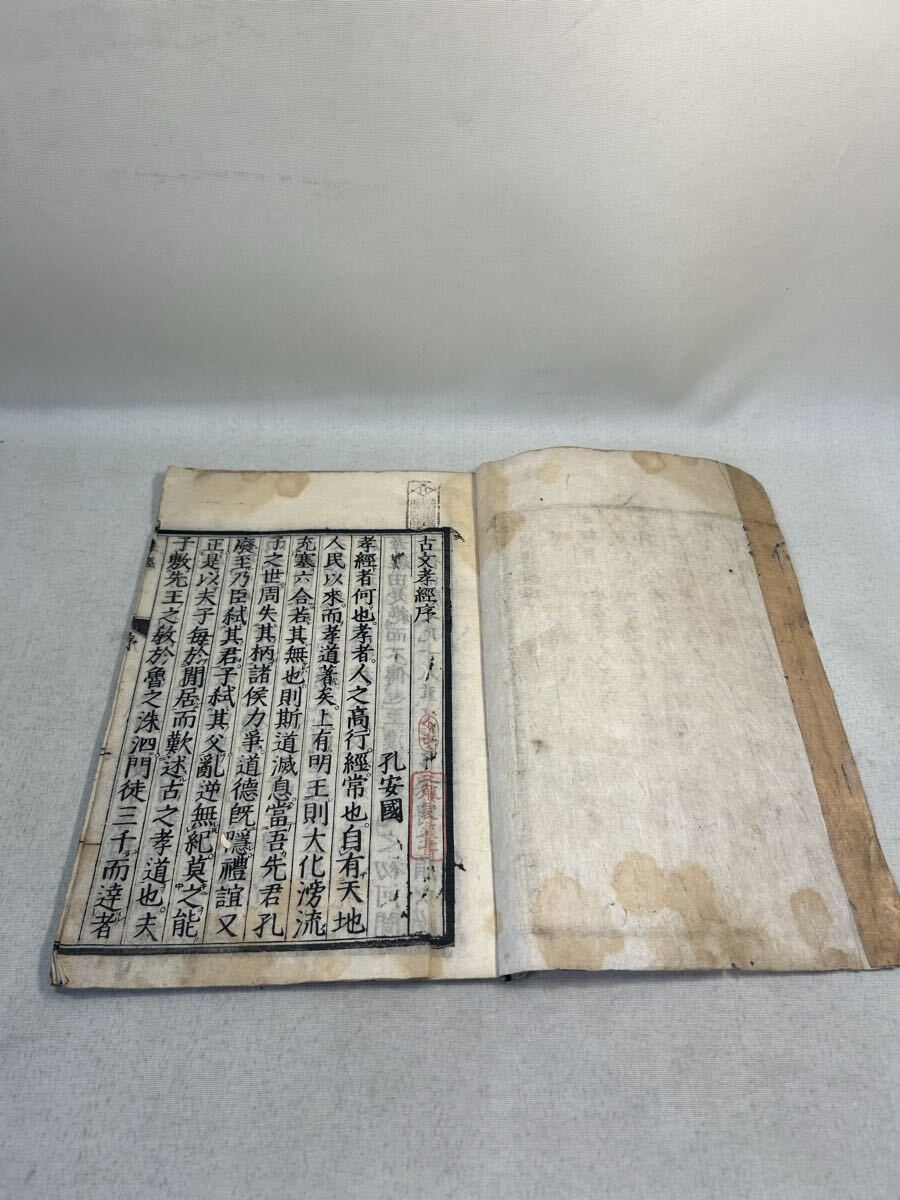 古文孝經序
孔安國
孝經者何也。孝者。人之高行。經。常也。自有天地
人民以來。而孝道著矣。上有明王。則大化滂流
充塞六合。若其無也。則斯道滅息。當吾先君孔
子之世。周失其柄。諸侯力爭。道德既隱。禮誼又
廢。至乃臣弑其君。子弑其父。亂逆無紀。莫之能
正。是以夫子每於閒居。而歎述古之孝道也。夫
子敷先王之教於魯之洙泗。門徒三千。而達者
序